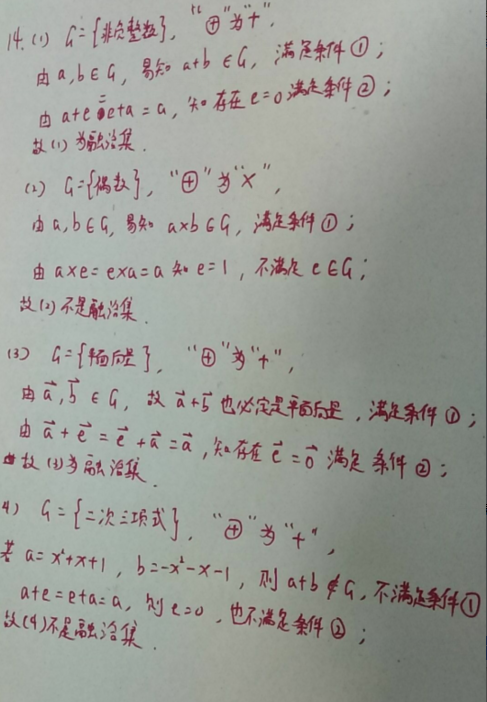 14. (1) G={非负整数}, "⊕"为"+",
由a,b∈G, 易知 a+b ∈G, 满足条件①;
由 a+e=e+a=a, 知存在 e=0满足条件②;
故(1)为融洽集.
(2) G={偶数}, "⊕"为"×",
由a,b∈G, 易知 a×b∈G, 满足条件①;
由 a×e=e×a=a 知 e=1, 不满足 e∈G;
故(2)不是融洽集.
(3) G={平面向量}, "⊕"为"+",
由a⃗,b⃗ ∈G, 故 a⃗+b⃗ 也必定是平面向量, 满足条件①;
由 a⃗+e⃗=e⃗+a⃗=a⃗, 知存在 e⃗=0⃗ 满足 条件②;
故(3)为融洽集.
4) G={二次三项式}, "⊕"为"+",
若 a=x²+x+1, b=-x²-x-1, 则 a+b∉G, 不满足条件①
a+e=e+a=a, 则 e=0, 也不满足条件②;
故(4)不是融洽集.